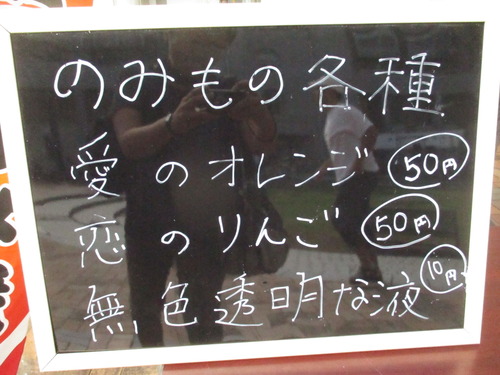 のみもの各種
愛のオレンジ 50円
恋のりんご 50円
無色透明な液 10円